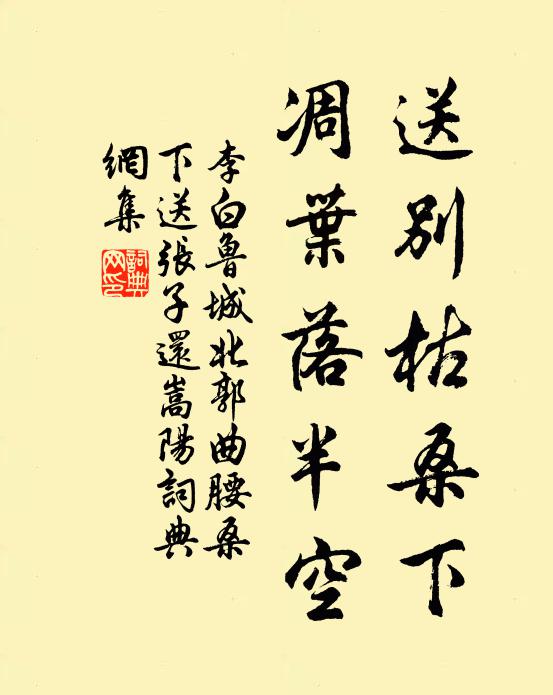 送别枯桑下
凋葉落半空
李白魯城北郭曲腰桑
下送張子還嵩陽詞典
網集
詞典
网印